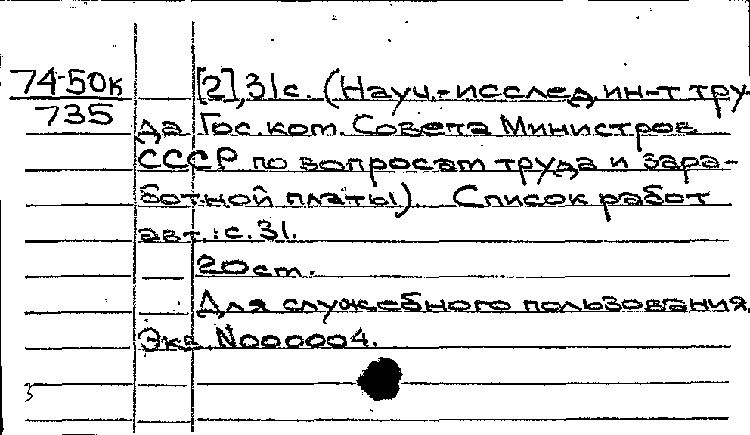 74-50к [2],31с. (Науч.-исслед. ин-т тру-
735 да Гос. ком. Совета Министров
СССР по вопросам труда и зара-
ботной платы). Список работ
авт.: с. 31.
20 ст.
Для служебного пользования.
Экз. N000004.